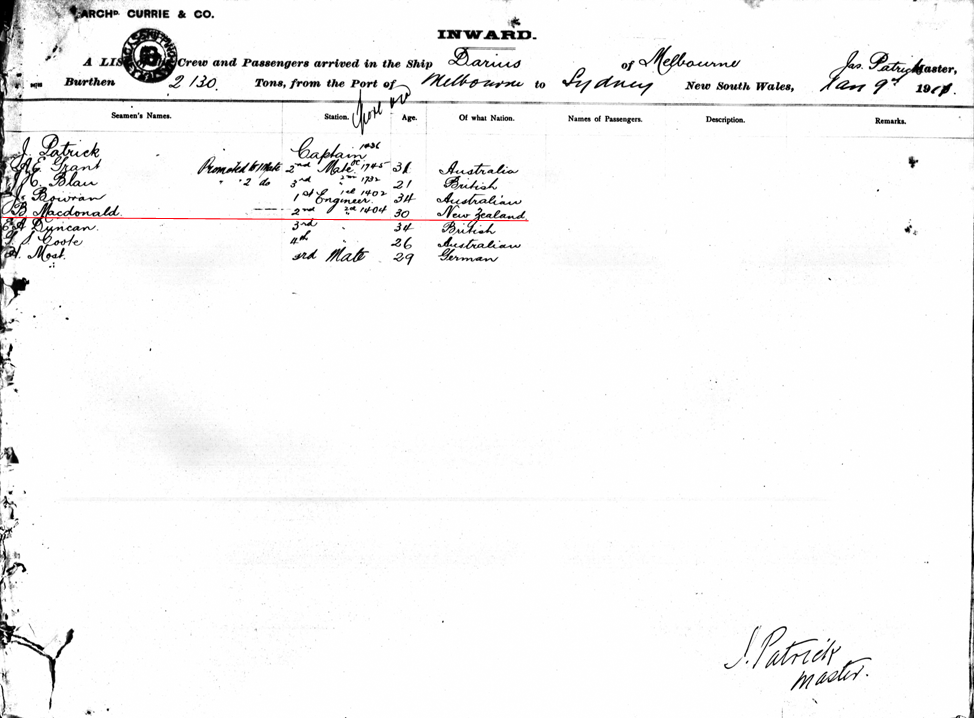 ARCHD. CURRIE & CO.
INWARD.
A LIS Crew and Passengers arrived in the Ship Darius of Melbourne Jas. Patrick Master,
Burthen 2130 Tons, from the Port of Melbourne to Sydney New South Wales, Jan 9th 19
Seamen's Names. Station. Age. Of what Nation. Names of Passengers. Description. Remarks.
J. Patrick Captain 1036
Grant Promoted to 1 Mate 2nd Mate 1745 31 Australia
Blau " " 2 do 3rd 1732 21 British
Bowran 1st Engineer 1st 1402 34 Australian
B Macdonald. 2nd " 2nd 1404 30 New Zealand
Duncan. 3rd " 34 British
Coote 4th " 26 Australian
Most. 3rd Mate 29 German
J. Patrick
Master.